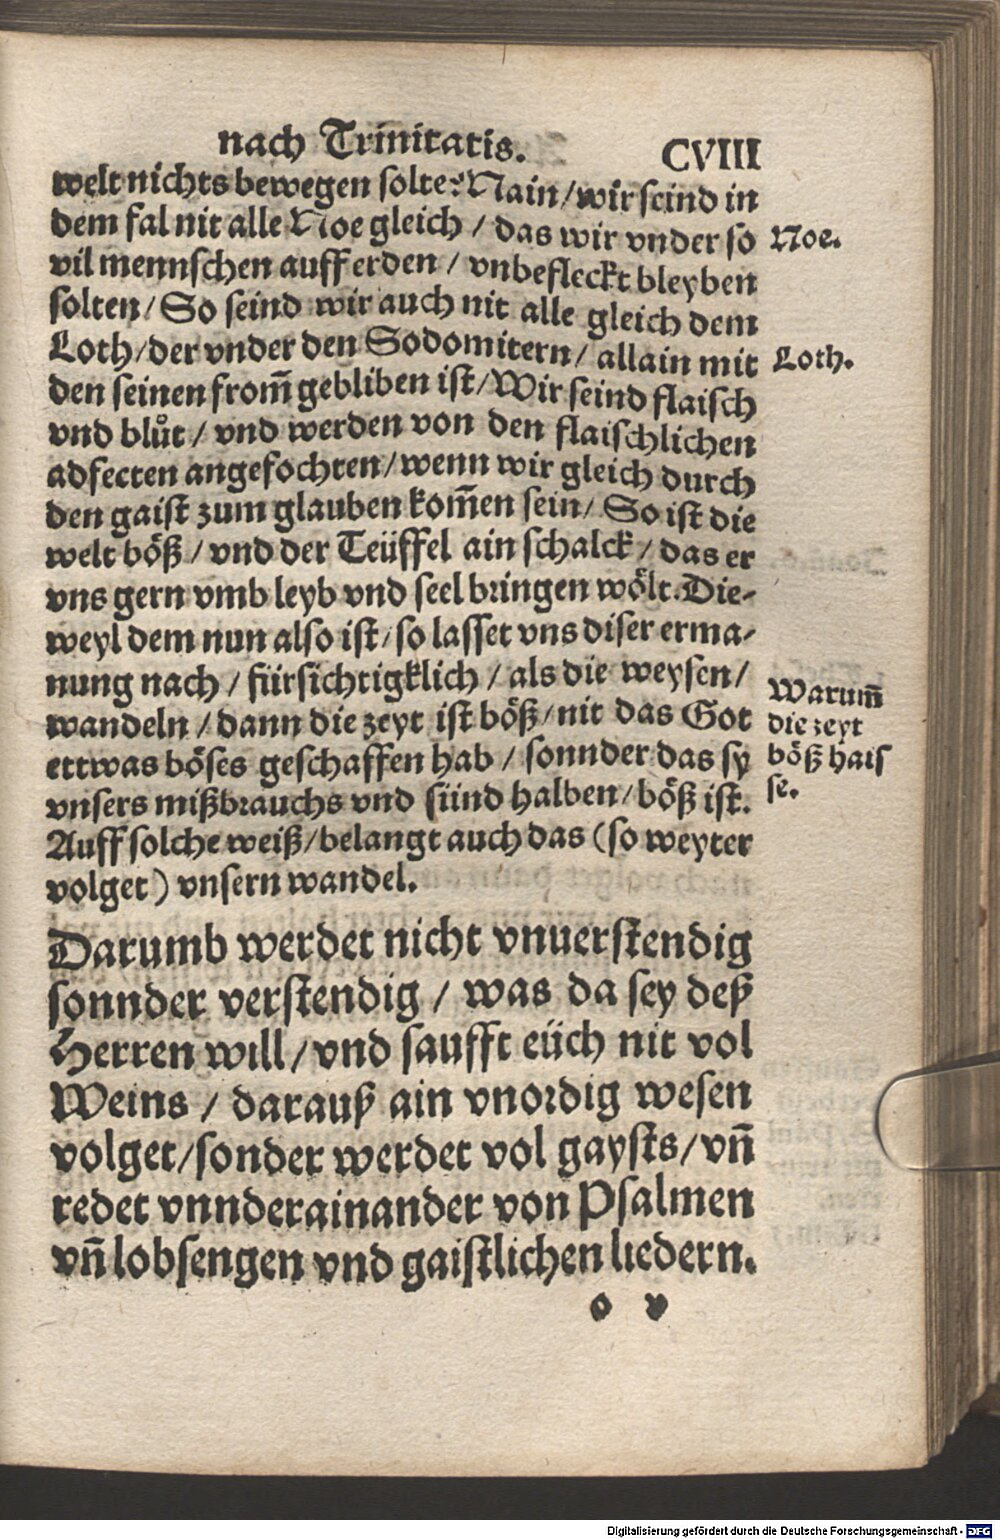 nach Trinitatis. CVIII
welt nichts bewegen solte? Nain / wir seind in
dem fal nit alle Noe gleich / das wir vnder so
Noe.
vil mennschen auff erden / vnbefleckt bleyben
solten / So seind wir auch nit alle gleich dem
Loth / der vnder den Sodomitern / allain mit
Loth.
den seinen from̄ gebliben ist / Wir seind flaisch
vnd blůt / vnd werden von den flaischlichen
adfecten angefochten / wenn wir gleich durch
den gaist zum glauben kom̄en sein / So ist die
welt böß / vnd der Teüffel ain schalck / das er
vns gern vmb leyb vnd seel bringen wölt. Die-
weyl dem nun also ist / so lasset vns diser erma-
nung nach / fürsichtigklich / als die weysen /
wandeln / dann die zeyt ist böß / nit das Got
ettwas böses geschaffen hab / sonnder das sy
vnsers mißbrauchs vnd sünd halben / böß ist.
Warum̄
die zeyt
böß hais
se.
Auff solche weiß / belangt auch das (so weyter
volget) vnsern wandel.
Darumb werdet nicht vnuerstendig
sonnder verstendig / was da sey deß
Herren will / vnd saufft eüch nit vol
Weins / darauß ain vnordig wesen
volget / sonder werdet vol gaysts / vn̄
redet vnnderainander von Psalmen
vn̄ lobsengen vnd gaistlichen liedern.
o v
Digitalisierung gefördert durch die Deutsche Forschungsgemeinschaft - DFG